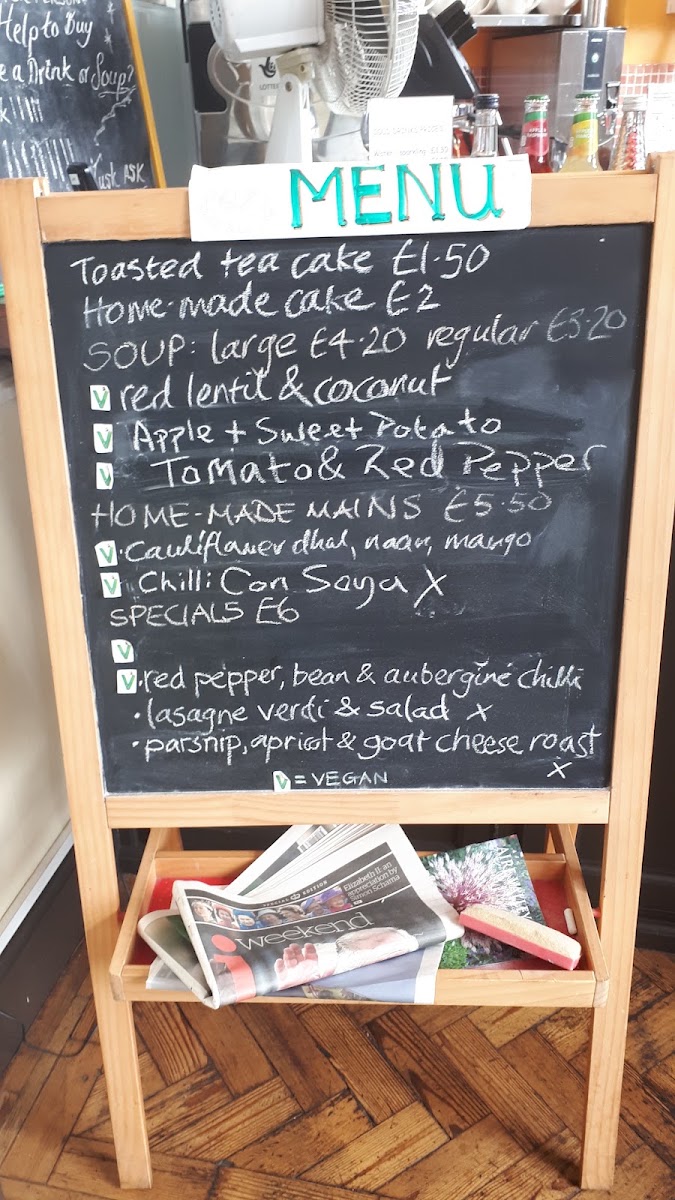 Help to Buy
e a Drink or Soup?
Just ASK
LOTTER
MENU
Toasted tea cake £1.50
Home-made cake £2
SOUP: large £4.20 regular £3.20
V red lentil & coconut
V Apple + Sweet Potato
V Tomato & Red Pepper
HOME-MADE MAINS £5.50
V • Cauliflower dhal, naan, mango
V Chilli Con Soya X
SPECIALS £6
V
V • red pepper, bean & aubergine chilli
• lasagne verdi & salad X
• parsnip, apricot & goat cheese roast
X
V = VEGAN
SPECIAL EDITION
Elizabeth II: an
appreciation by
Simon Schama
i weekend